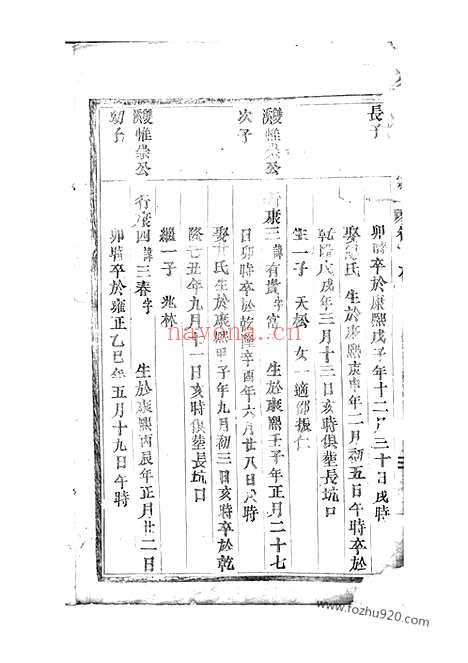 長子
卯時卒於康熙戊子年十二月三十日戌時
娶 氏 生於康熙庚申年二月初五日午時卒於
乾隆 戌年三月十三日亥時俱塟長坑口
生一子 天松 女一適邵振仁
燮惟崇公
次子
行康三 諱有貴 字富 生於康熙壬子年正月二十七
日卯時卒於乾隆辛酉年六月廿八日 時
娶 氏生於康熙甲子年九月初三日亥時卒於乾
隆 丑年九月十一日亥時俱塟長坑口
繼一子 兆松
燮惟崇公
幼子
行康四 諱三春 字 生於康熙丙辰年正月廿二日
卯時卒於雍正乙巳年五月十九日午時
nayona.cn
www.fozhu920.com